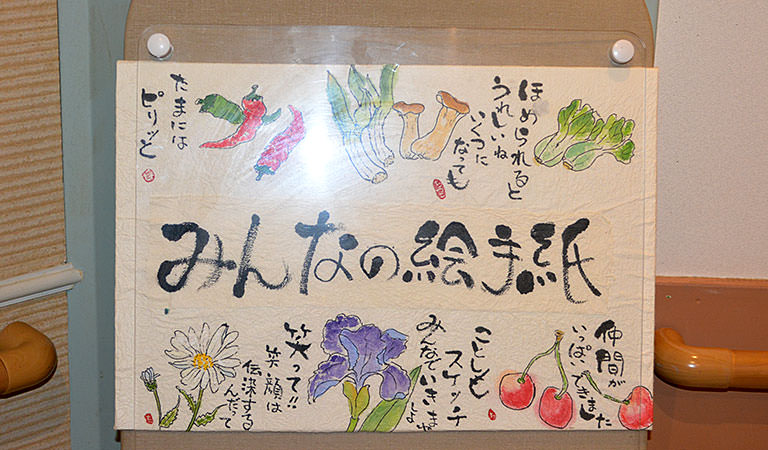 ほめられると
うれしいね
いくつに
なっても
たまには
ピリッと
みんなの絵手紙
仲間が
いっぱいできました
ことしも
スケッチ
みんなでいきましょ
笑って!!
笑顔は
伝染する
んだって